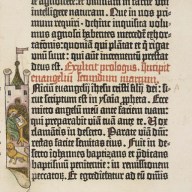 intelligere naturam. Due in nos primum
equiri: dehinc inquisita volu-
agnosci: habentes mercedem exhor-
tationis: quoniam qui plantat et qui rigat
unum sunt: qui autem incrementum prestat
deus est. Explicit prologus. Incipit
evangelium secundum marcum.
Inicium evangelij ihesu cristi filij dei: si-
cut scriptum est in ysaia propheta. Ecce
mitto angelum meum ante faciem tuam:
qui preparabit viam tuam ante te. Vox
clamantis in deserto. Parate viam domini:
rectas facite semitas eius. Fuit in de-
serto iohannes baptizans et predicans
baptismum penitentie: in remissionem
peccatorum. Et egrediebatur ad eum omnis